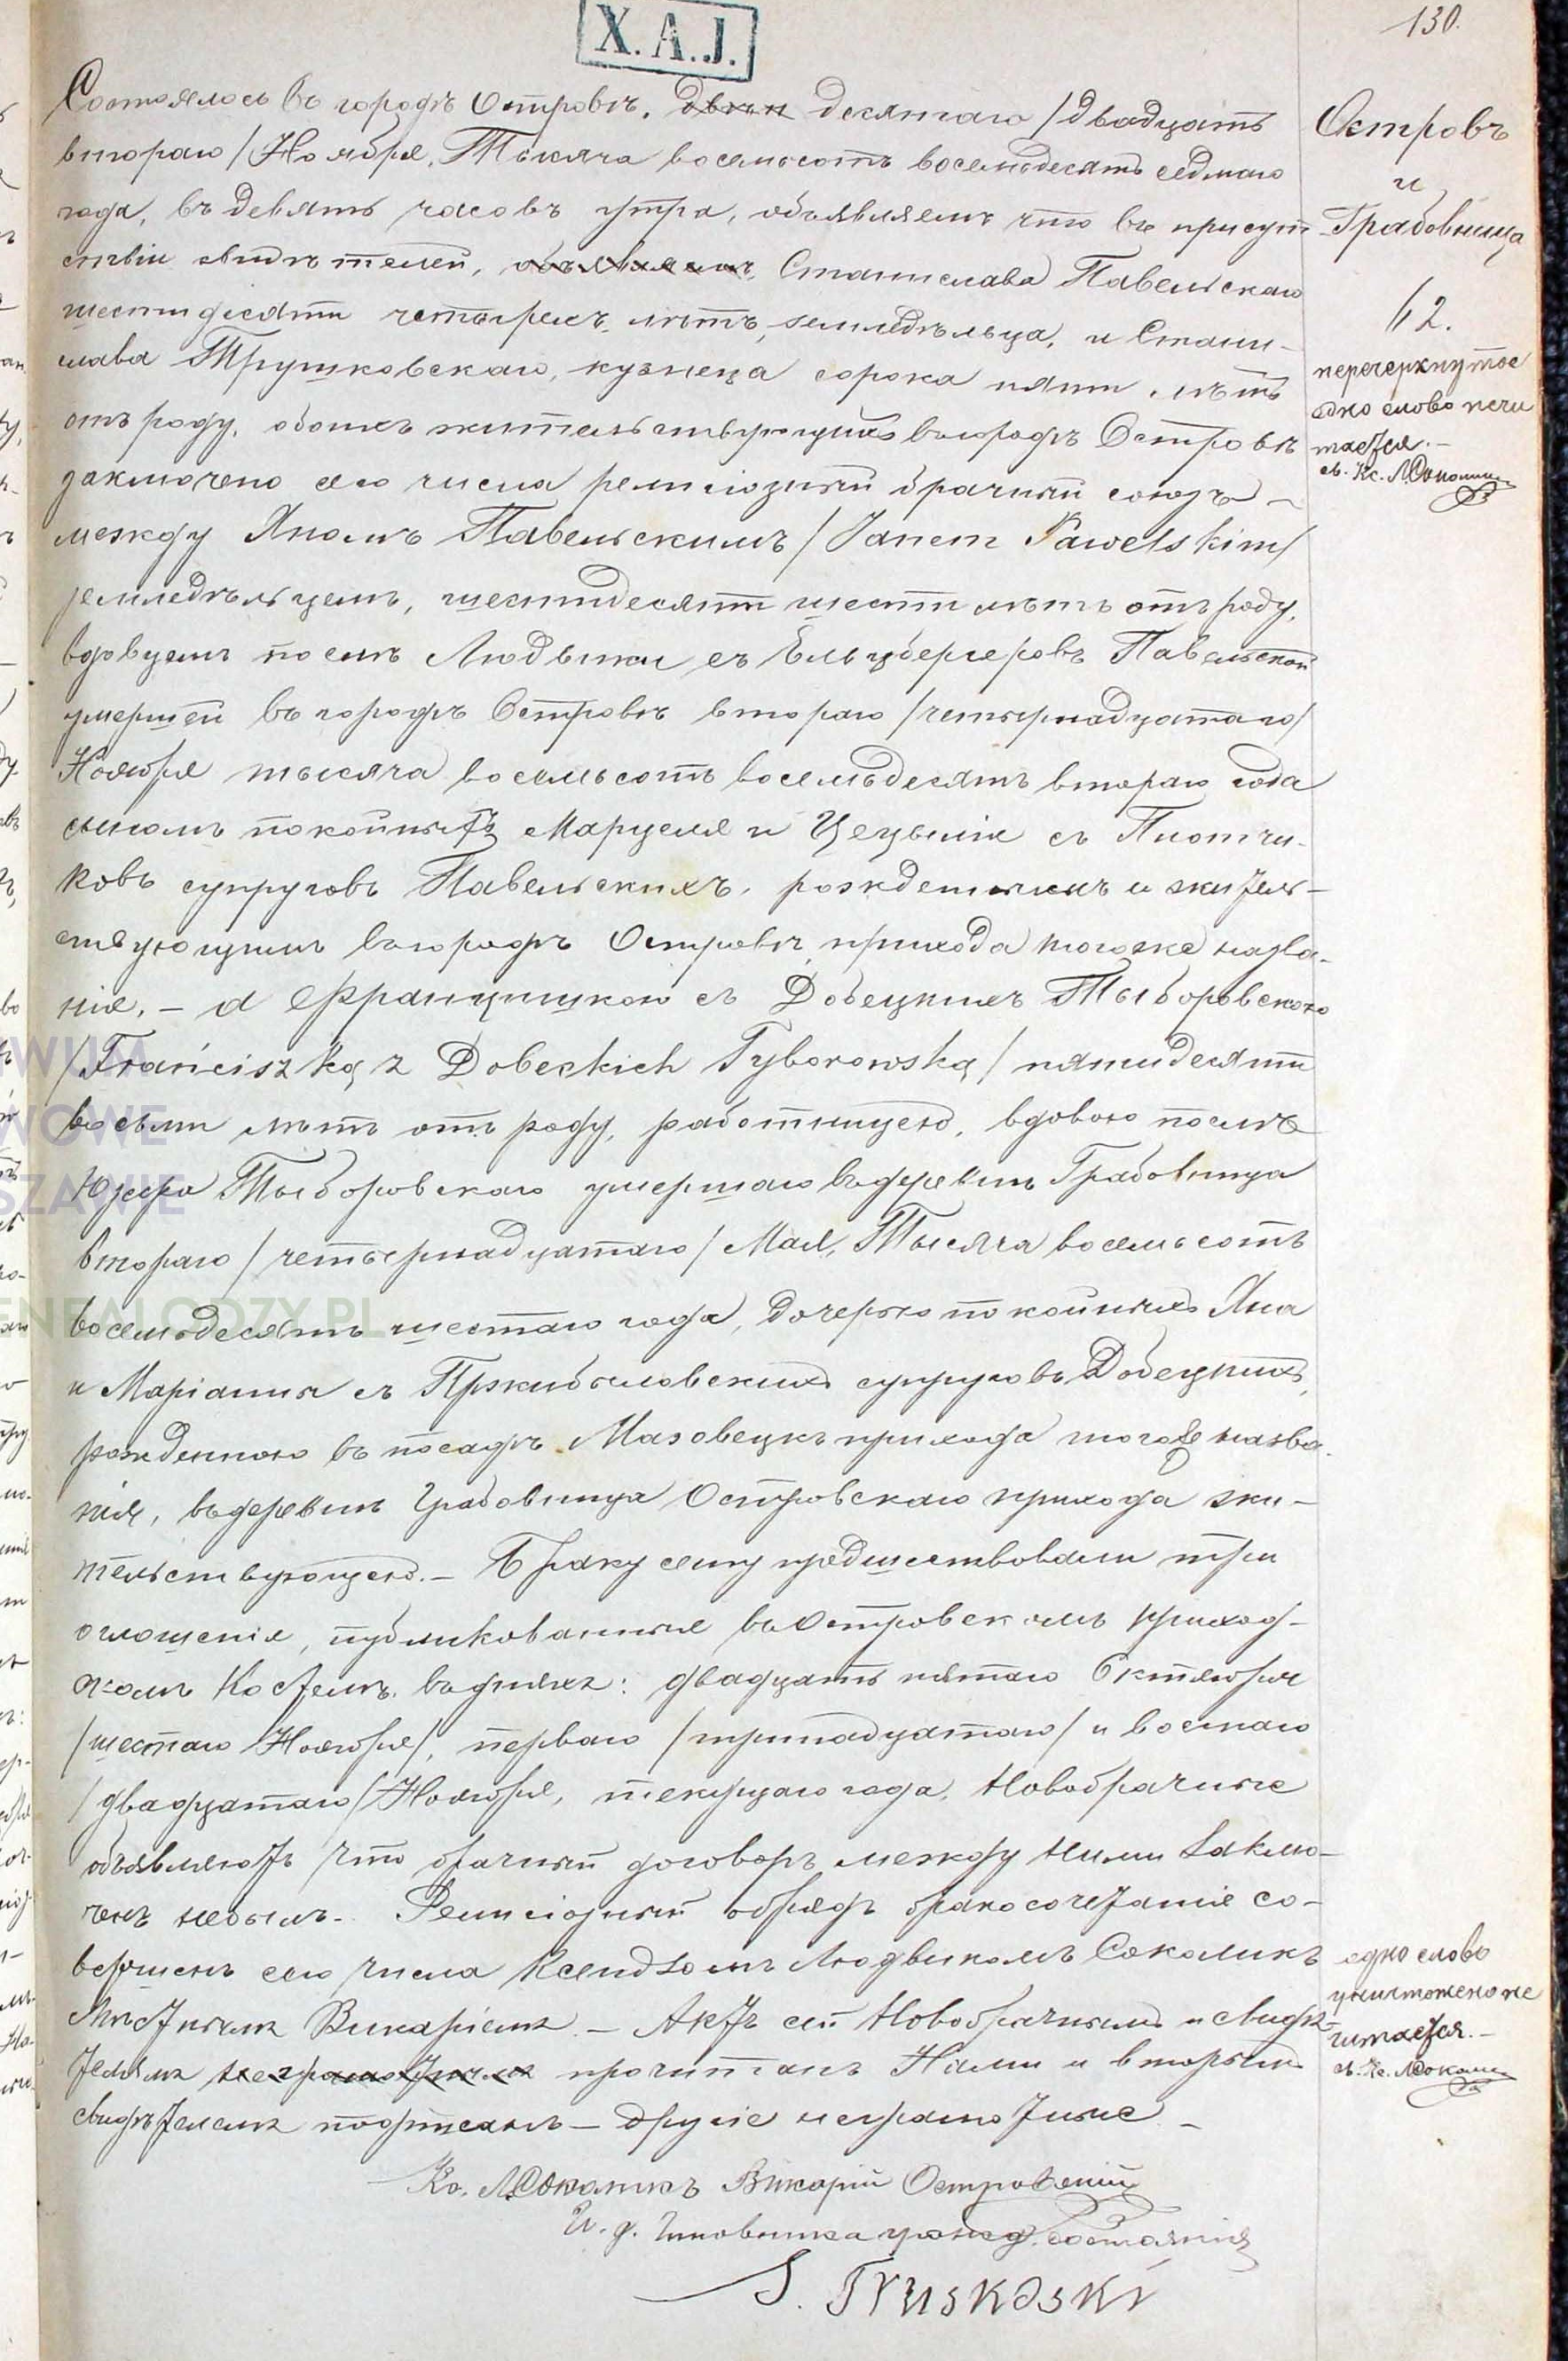 X.A.J.
130.
Состоялось въ городѣ Островѣ, десятаго /двадцать
втораго/ Ноября, Тысяча восемьсотъ восемьдесятъ седмаго
года, въ девять часовъ утра, объявляемъ что въ присут-
ствіи свидѣтелей, объявляемъ, Станислава Павельскаго
шестидесяти четырехъ лѣтъ, земледѣльца, и Стани-
слава Трушковскаго, кузнеца сорока пяти лѣтъ
отъ роду, обоихъ жительствующихъ въ городѣ Островѣ
заключено сего числа религіозный брачный союзъ –
между Яномъ Павельскимъ /Janem Pawelskim/
земледѣльцемъ, шестидесяти шести лѣтъ отъ роду,
вдовцемъ послѣ Людвики съ Ельцбергеровъ Павельской
умершей въ городѣ Островѣ втораго /четырнадцатаго/
Ноября тысяча восемьсотъ восемьдесятъ втораго года
сыномъ покойныхъ Марцеля и Цецыліи съ Піотчи-
ковъ супруговъ Павельскихъ, рожденнымъ и житель-
ствующимъ въ городѣ Островѣ, прихода тогоже назва-
нія, – а Францишкою съ Добецкихъ Тыборовскою
/Franciszką z Dobeckich Tyborowską/ пятидесяти
восьми лѣтъ отъ роду, работницею, вдовою послѣ
Юзефа Тыборовскаго умершаго въ деревнѣ Грабовница
втораго /четырнадцатаго/ Мая, Тысяча восемьсотъ
восемьдесятъ шестаго года, дочерью покойныхъ Яна
и Маріанны съ Пржибыловскихъ супруговъ Добецкихъ,
рожденною въ посадѣ Мазовецкъ прихода тогоже назва-
нія, въ деревнѣ Грабовница Островскаго прихода жи-
тельствующею. – Браку сему предшествовали три
оглошенія, публикованныя въ Островскомъ приход-
скомъ Костелѣ, въ дняхъ: двадцать пятаго Октября
/шестаго Ноября/, перваго /тринадцатаго/ и восмаго
/двадцатаго/ Ноября, текущаго года. Новобрачные
объявляютъ что брачный договоръ между ними заклю-
ченъ небылъ. Религіозный обрядъ бракосочетанія со-
вершенъ сего числа Ксендзомъ Людвикомъ Соколикъ
Мѣстнымъ Викаріемъ. – Актъ сей Новобрачнымъ и свидѣ-
телямъ неграмотнымъ прочитанъ Нами и вторымъ
свидѣтелемъ подписанъ – другіе неграмотные –
Кс. Л. Соколикъ Викарій Островскій
И. д. Чиновника гражд. состоянія
S. Truskoski
Островъ
и
Грабовница
62.
перечеркнутое
одно слово нечи
тается. –
одно слово
уничтожено не
читается. –